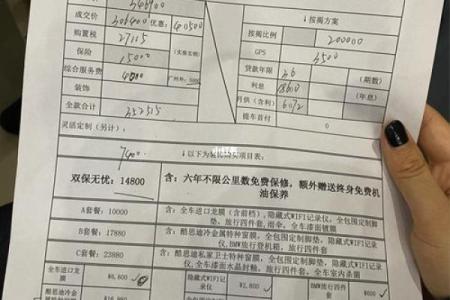 346900
成交价 306400 优惠: 40500 按揭方案
购置税 27115 按揭比例 200000
保险 15000 GPS 3500
综合服务费 4000 贷款年限 36 (期数)
装饰 利息 (年息)
全款合计 352515 月供(含利) 6072
灵活定制(另计): 提车首付
小红书
双保无忧: 14800 含: 六年不限公里数免费保修, 额外赠送终身免费机油保养
A套餐: 10000 含: 全车进口龙膜(含前档), 隐藏式WIFI记录仪, 全包围定制脚垫, 旅行四件套, 全车漆面镀膜
B套餐: 17880 含: 酷思迪冷金属特种窗膜, 隐藏式WIFI记录仪, 全包围定制脚垫, BMW旅行登机箱, 旅行四件套
C套餐: 23880 含: 酷思迪私家卫士特种窗膜, 隐藏式WIFI记录仪, 全包围定制脚垫, 全车漆面水晶封釉, 旅行四件套, 全车室内杀菌
全车进口龙膜 ¥6,800 隐藏式WIFI记录仪 ¥2,800 BMW旅行四件套 ¥600